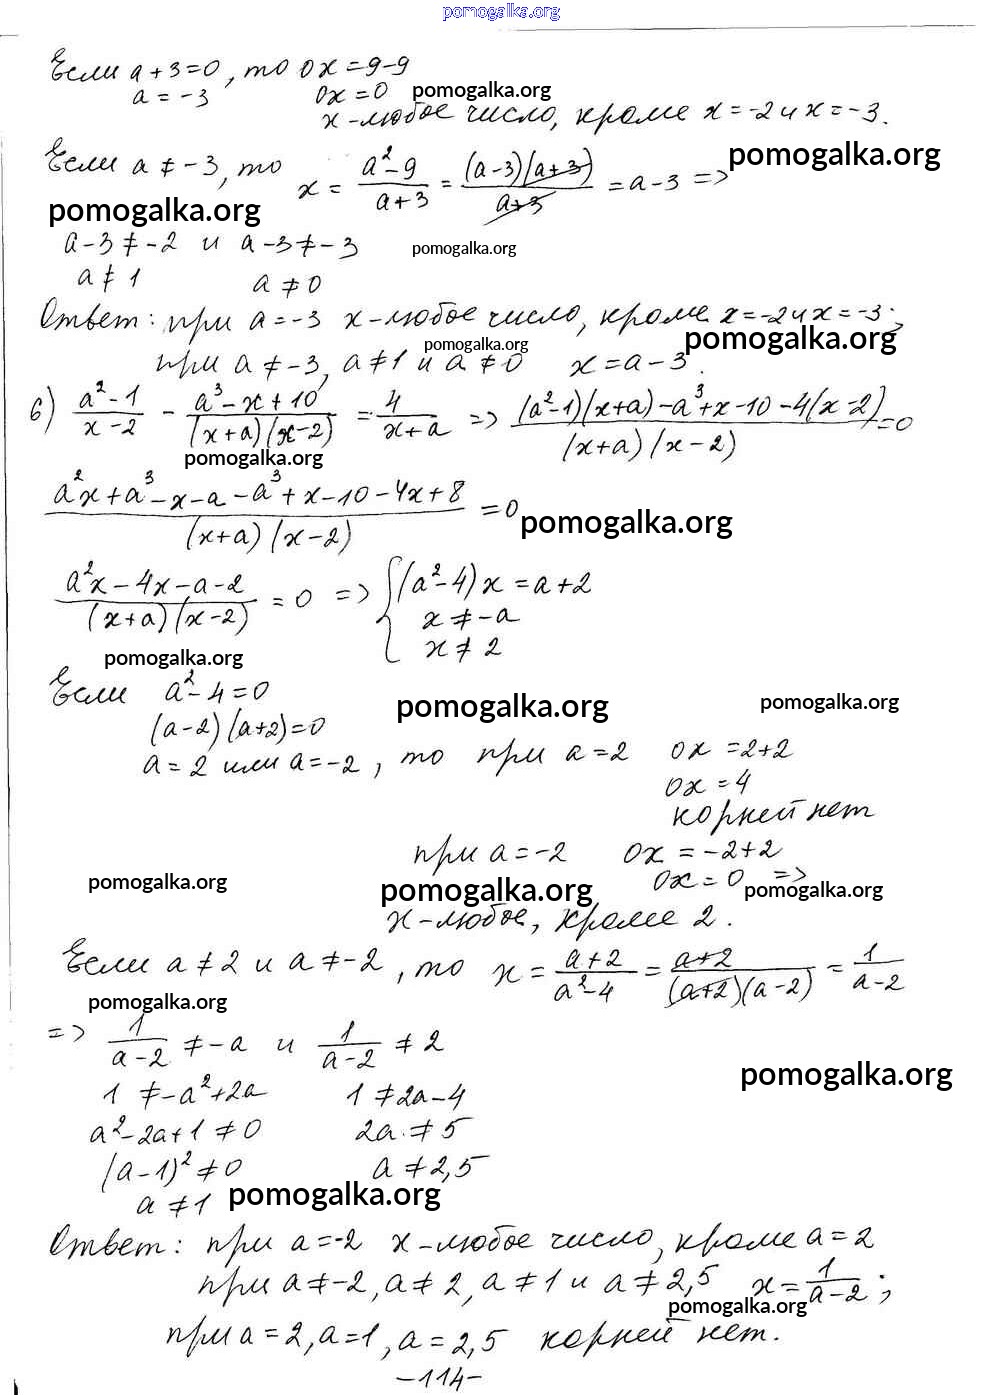 pomogalka.org
Если a+3=0, то 0x=9-9
a=-3 0x=0 pomogalka.org
x-любое число, кроме x=-2 и x=-3.
Если a≠-3, то x = (a²-9)/(a+3) = ((a-3)(a+3))/(a+3) = a-3 => pomogalka.org
pomogalka.org
a-3≠-2 и a-3≠-3 pomogalka.org
a≠1 a≠0
Ответ: при a=-3 x-любое число, кроме x=-2 и x=-3;
pomogalka.org pomogalka.org
при a≠-3, a≠1 и a≠0 x=a-3.
б) (a²-1)/(x-2) - (a³-x+10)/((x+a)(x-2)) = 4/(x+a) => ((a²-1)(x+a)-a³+x-10-4(x-2))/((x+a)(x-2)) = 0
pomogalka.org
(a²x+a³-x-a-a³+x-10-4x+8)/((x+a)(x-2)) = 0 pomogalka.org
(a²x-4x-a-2)/((x+a)(x-2)) = 0 => { (a²-4)x=a+2
x≠-a
x≠2
pomogalka.org
Если a²-4=0
pomogalka.org pomogalka.org
(a-2)(a+2)=0
a=2 или a=-2, то при a=2 0x=2+2
0x=4
корней нет
при a=-2 0x=-2+2
pomogalka.org pomogalka.org 0x=0 => pomogalka.org
x-любое, кроме 2.
Если a≠2 и a≠-2, то x = (a+2)/(a²-4) = (a+2)/((a+2)(a-2)) = 1/(a-2)
pomogalka.org
=> 1/(a-2) ≠ -a и 1/(a-2) ≠ 2
pomogalka.org
1≠-a²+2a 1≠2a-4
a²-2a+1≠0 2a≠5
(a-1)²≠0 a≠2,5
a≠1 pomogalka.org
Ответ: при a=-2 x-любое число, кроме a=2
при a≠-2, a≠2, a≠1 и a≠2,5 x = 1/(a-2);
pomogalka.org
при a=2, a=1, a=2,5 корней нет.
-114-